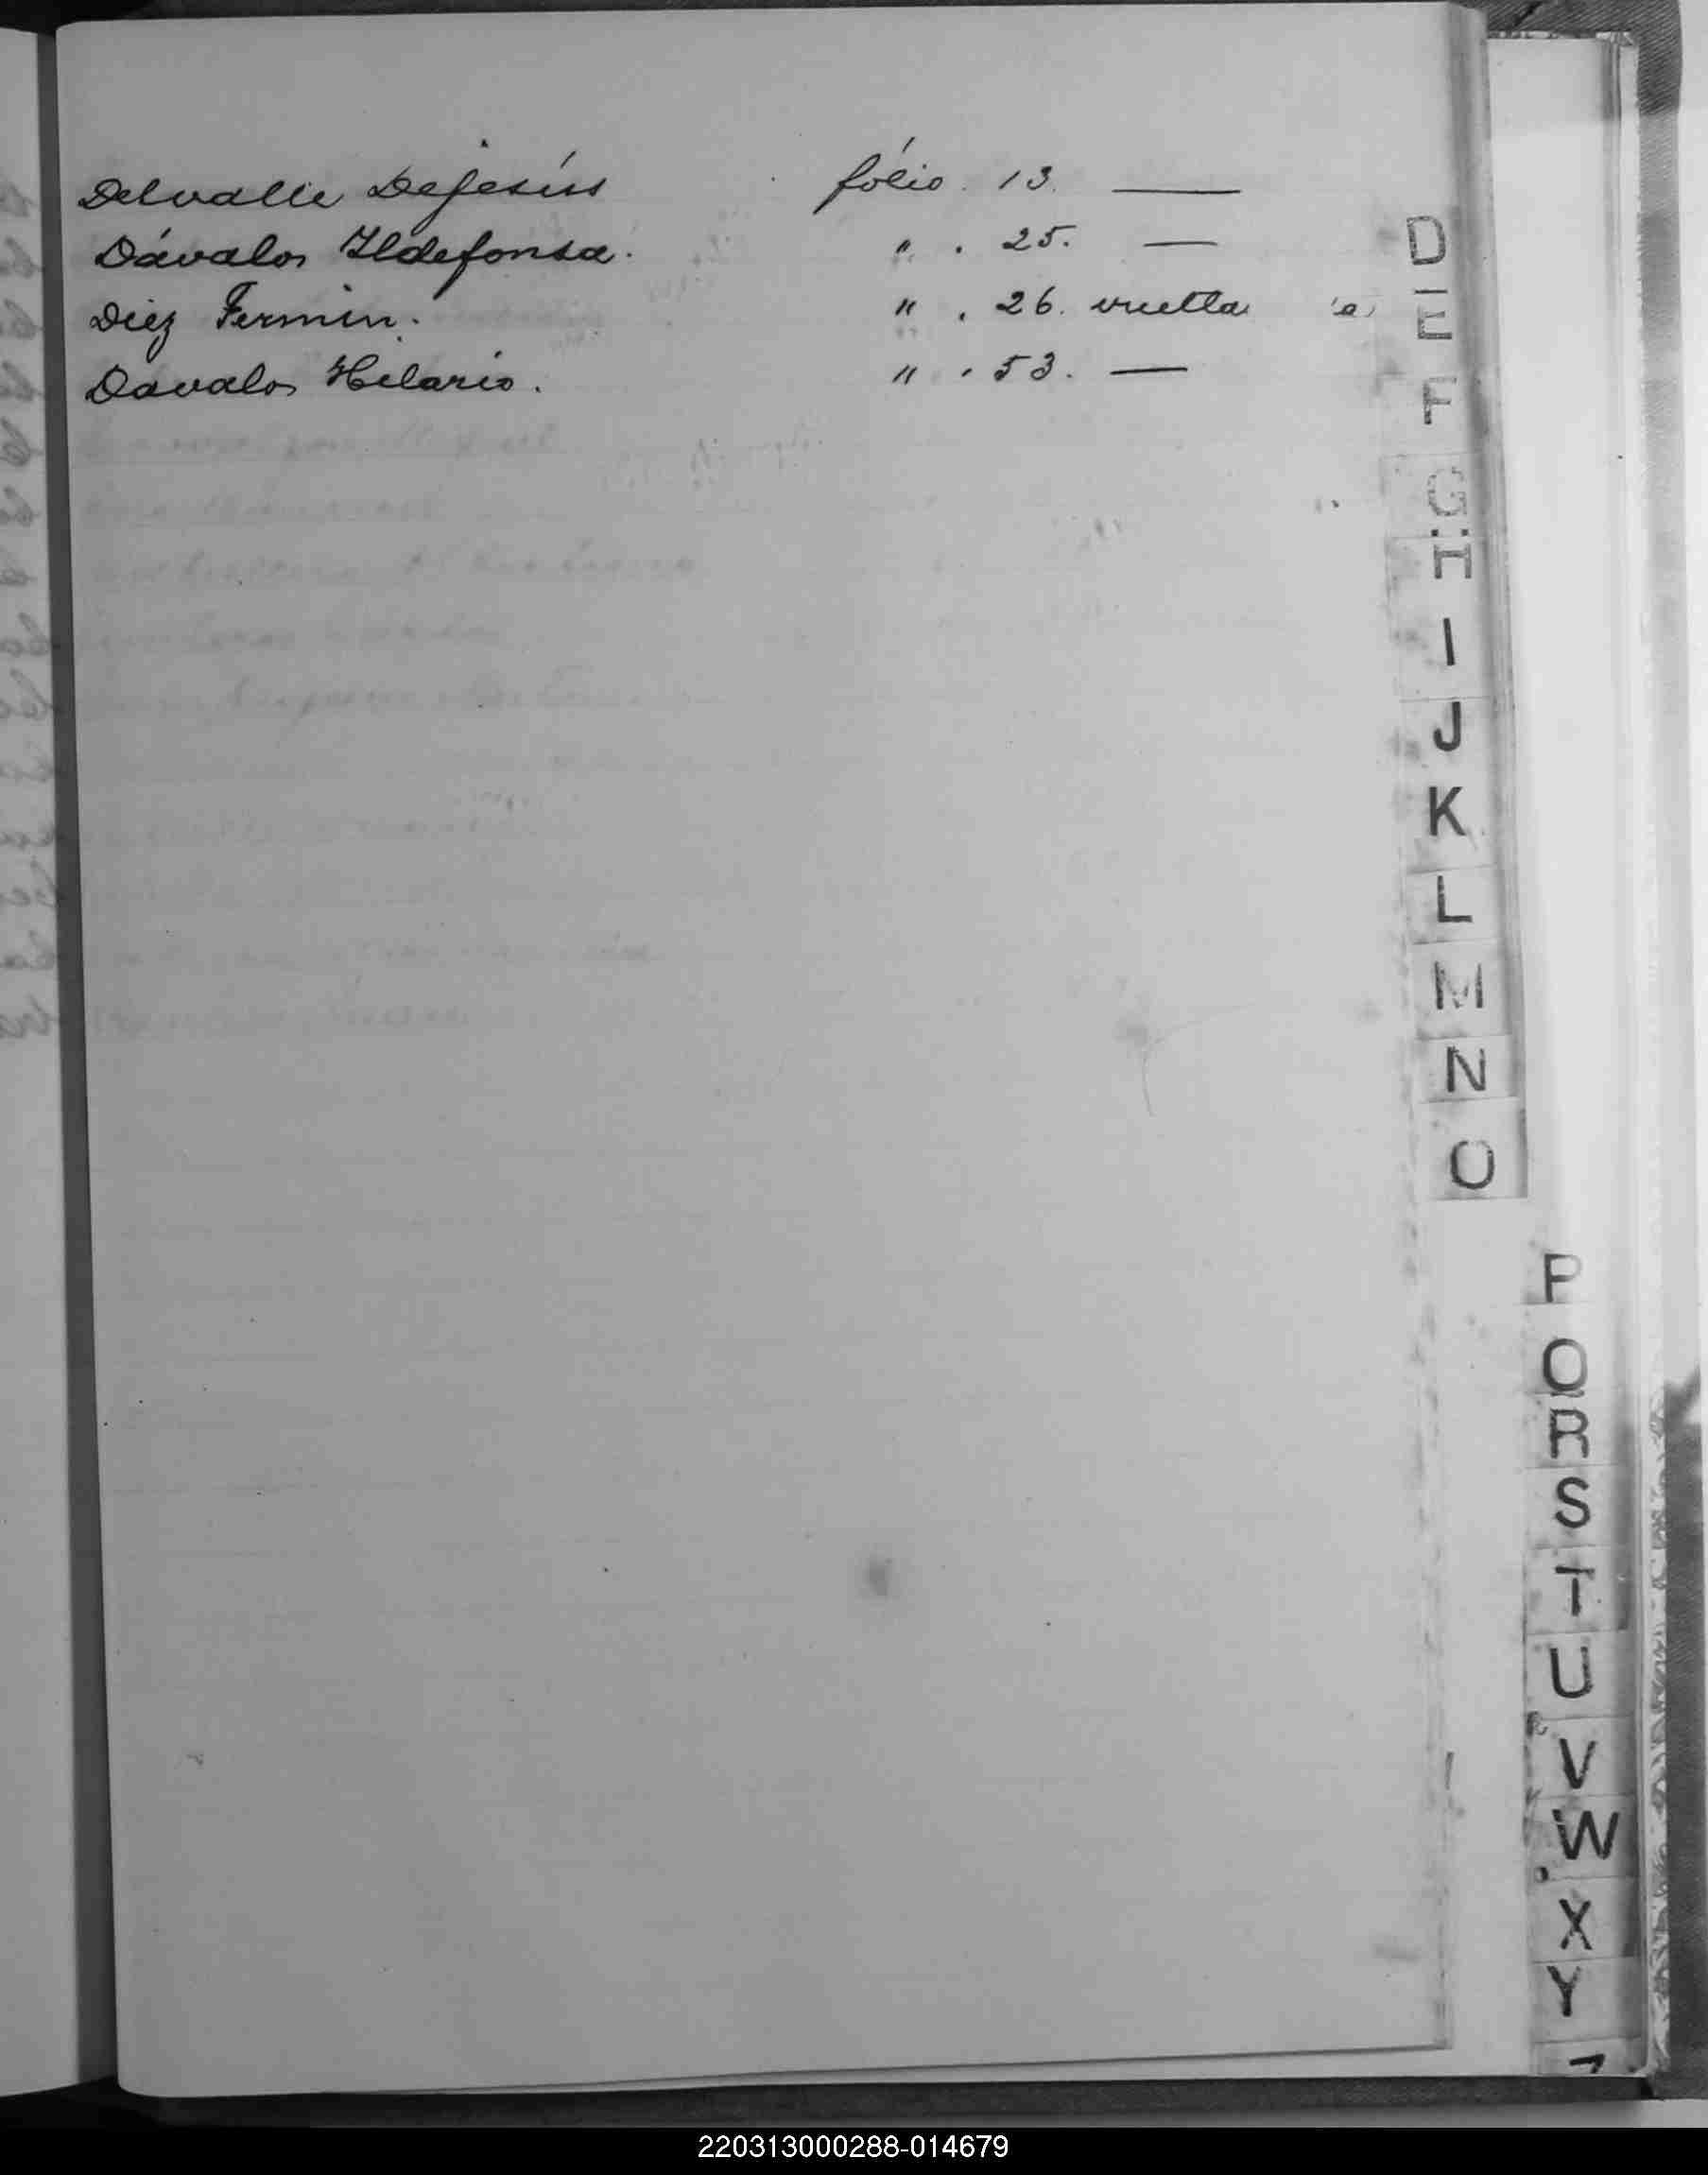 Delvalle DeJesús fólio 13. —
Dávalos Ildefonsa. " . 25. —
Diez Fermin. " . 26. vuelta
Davalos Hilario. " . 53. —
D
E
F
G
H
I
J
K
L
M
N
O
P
Q
R
S
T
U
V
W
X
Y
220313000288-014679